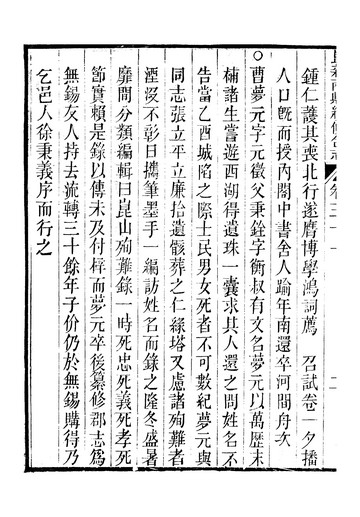 鍾仁護其喪北行遂膺博學鴻詞薦　召試卷一夕播
人口旣而授內閣中書舍人踰年南還卒河間舟次
○曹夢元字元徵父秉銓字衡叔有文名夢元以萬歷末
補諸生嘗遊西湖得遺珠一囊求其人還之問姓名不
告當乙酉城陷之際士民男女死者不可數紀夢元與
同志張立平立廉拾遺骸葬之仁緣塔又慮諸殉難者
湮沒不彰日攜筆墨手一編訪姓名而錄之隆冬盛暑
靡間分類編輯曰崑山殉難錄一時死忠死義死孝死
節實賴是錄以傳未及付梓而夢元卒後纂修郡志爲
無錫友人持去流轉三十餘年子价仍於無錫購得乃
乞邑人徐秉義序而行之